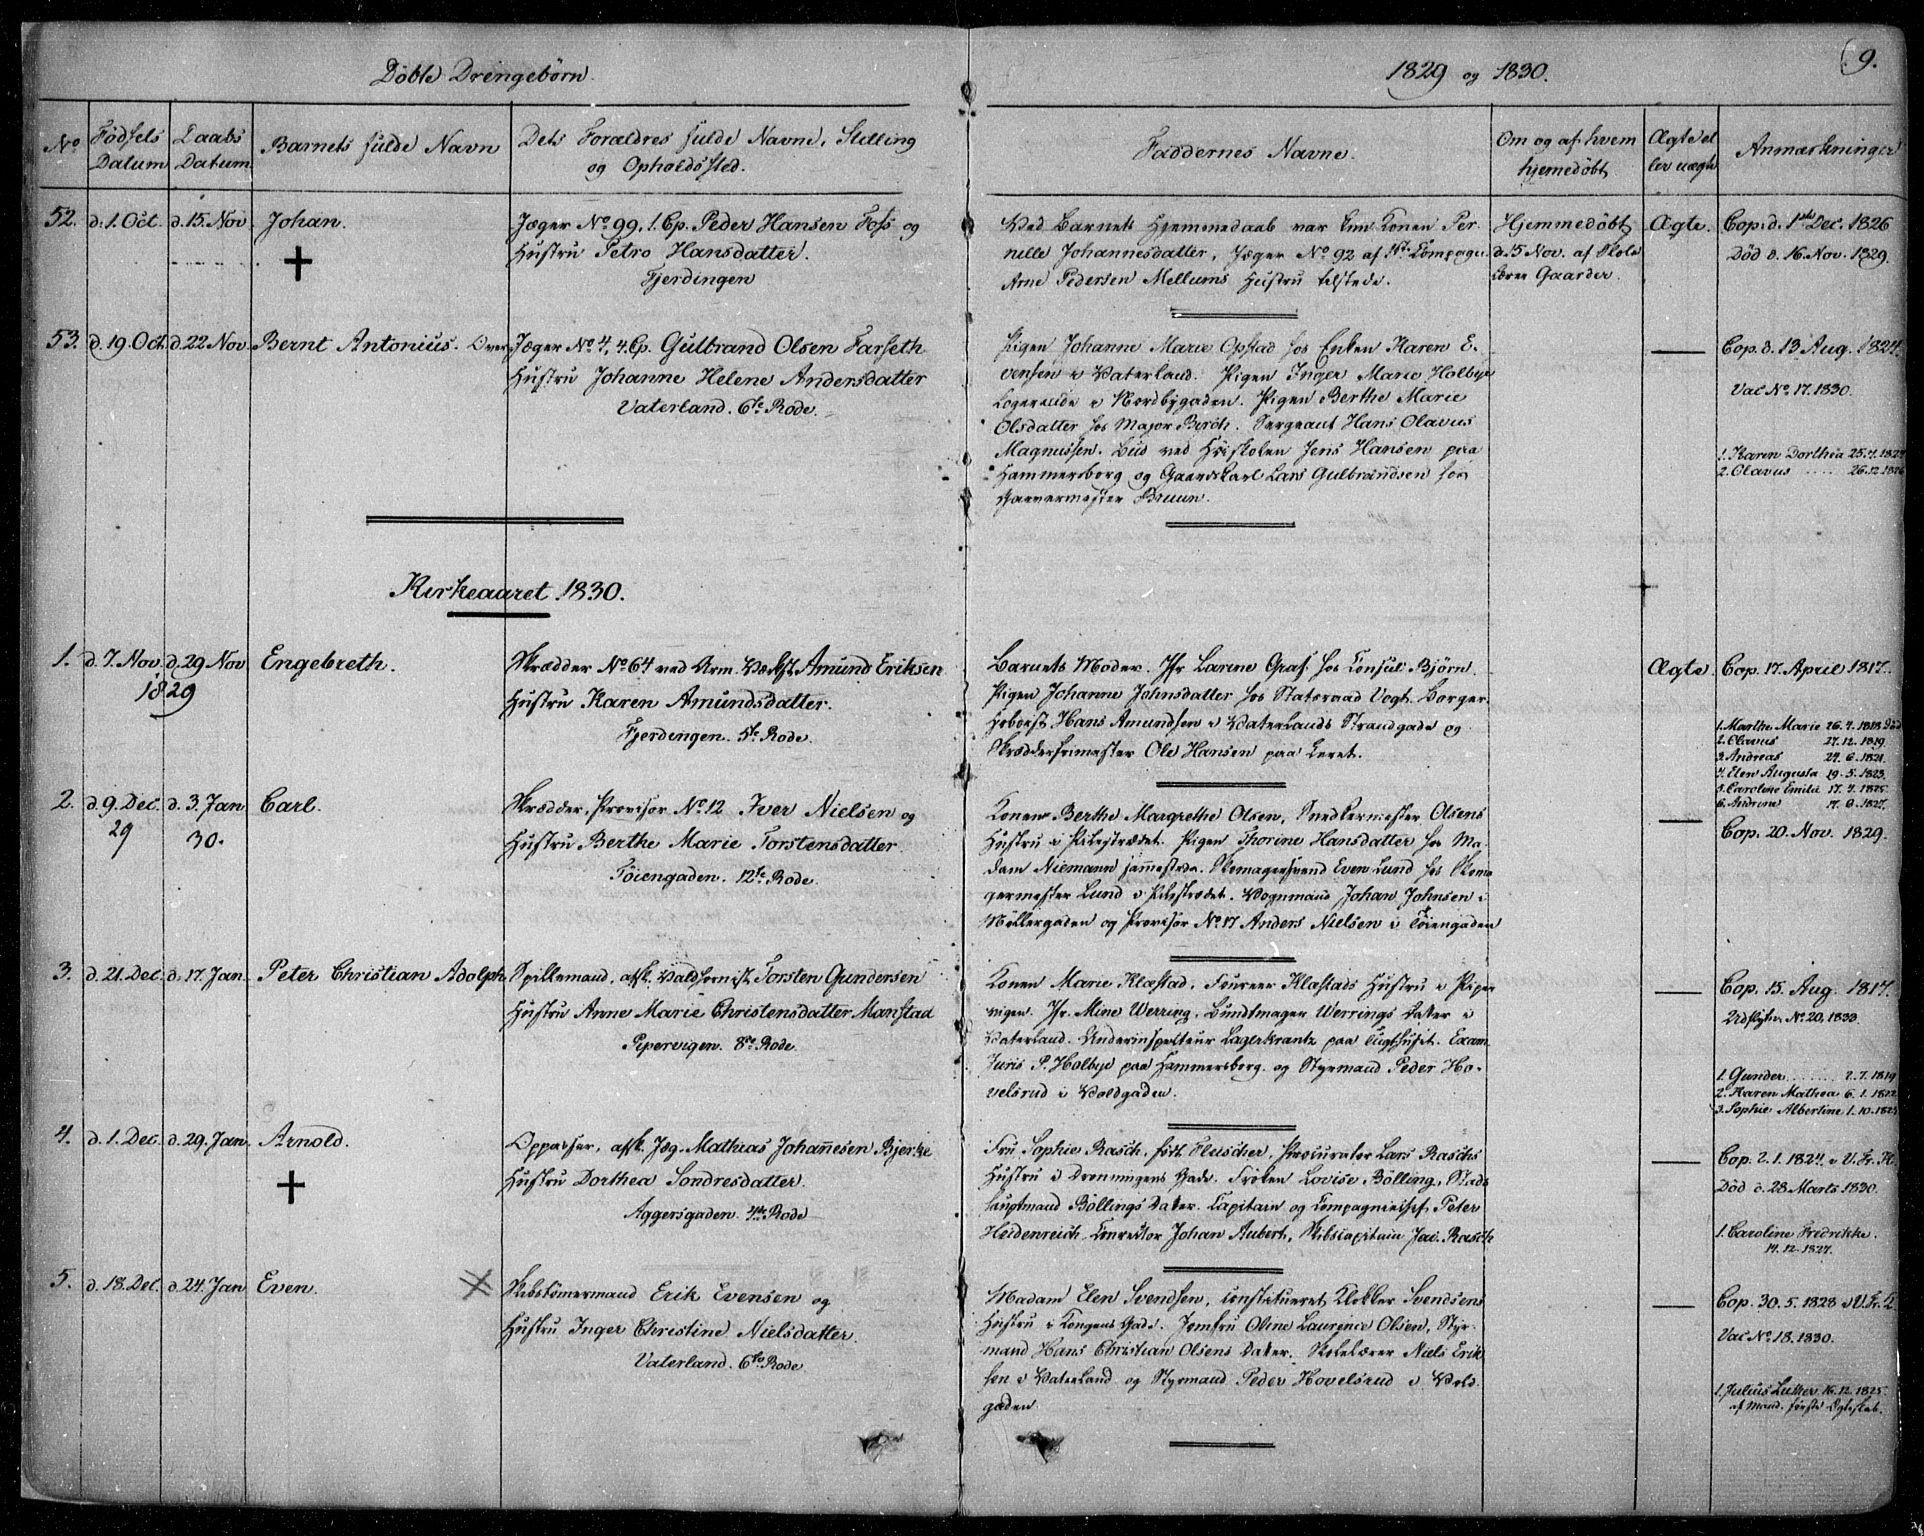 Døbte Drengebørn.
1829 og 1830.
9.
No
Fødsels Datum
Daabs Datum
Barnets fulde Navn
Dets Forældres fulde Navne, Stilling
og Opholdssted.
Faddernes Navne.
Om og af hvem
hjemedøbt
Ægte el
ler uægte
Anmærkninger
52.
d. 1. Oct.
d. 15. Nov
Johan.
Jæger No 99, 1. Cp. Peder Hansen Foss og
Hustru Petro Hansdatter.
Fjerdingen
Ved Barnets Hjemmedaab var kun Konen Per
nille Johannesdatter, Jæger No 92 af 4de Compagni
Arne Pedersen Mellums Hustru tilstede.
Hjemmedøbt
d. 15 Nov. af Skole
lærer Gaarder.
Ægte.
Cop. d. 1ste Dec. 1826
Død d. 16. Nov. 1829.
53.
d. 19. Oct.
d. 22 Nov.
Bernt Antonius.
Over Jæger No 4, 4. Cp. Gulbrand Olsen Farseth
Hustru Johanne Helene Andersdatter
Vaterland. 6te Rode.
Pigen Johanne Marie Opstad hos Enken Karen E-
vensen i Vaterland. Pigen Inger Marie Holbye
Logerende i Nordbygaden. Pigen Berthe Marie
Olsdatter hos Major Birch. Sergeant Hans Olavus
Magnussen. Bud ved Friskolen Jens Hansen paa
Hammersborg og Gaardskarl Lars Gulbrandsen hos
Garvermester Bruun.
Cop. d. 13 Aug. 1824.
Vac No. 17. 1830.
1. Karen Dorthea 25. 4. 1824
2. Olavus 26. 12. 1826
Kirkeaaret 1830.
1.
d. 7. Nov.
1829
d. 29 Nov
Engebreth.
Skrædder No 64 ved Arm. Værkst. Amund Eriksen
Hustru Karen Amundsdatter.
Fjerdengen. 5te Rode.
Barnets Moder. Jfr Larine Graf hos Consul Bjørn.
Pigen Johanne Johnsdatter hos Statsraad Vogt. Borger
Hans Amundsen i Vaterlands Strandgade og
Skrædderfrimester Ole Hansen paa Leret.
Ægte.
Cop. 17. April 1817.
1. Marthe Marie 26. 4. 1818 Død
2. Olavus 27. 12. 1819
3. Andreas 24. 6. 1821.
4. Elen Augusta 19. 5. 1823.
5. Caroline Emilie 17. 4. 1825.
6. Andrine 17. 9. 1827.
2.
d. 9. Dec.
29
d. 3. Jan
30.
Carl.
Skrædder, Provisor No 12 Iver Nielsen og
Hustru Berthe Marie Torstensdatter.
Toiengaden. 12te Rode.
Konen Berthe Margrethe Olsen, Snedkermester Olsens
Hustru i Pilestrædet. Pigen Thorine Hansdatter hos Ma-
dam Niemann sammestede. Skomagersvend Even Lund hos Skoma
germester Lund i Pilestrædet. Vognmand Johan Johnsen i
Møllergaden og Provisor No 17 Anders Nielsen i Tøiengaden
Cop. 20. Nov. 1829.
3.
d. 21. Dec.
d. 17. Jan.
Peter Christian Adolph
Spillemand, afsk. Valdhornist Torsten Gundersen
Hustru Anne Marie Christensdatter Manstad
Pepervigen. 8de Rode.
Konen Marie Klæstad, Foureer Klæstads Hustru i Piper
vigen. Jfr. Mine Werring, Bundtmager Werrings Datter i
Vaterland. Underinspecteur Lagerkrantz paa Tugthuset. Exam.
Juris P. Holbye paa Hammersborg. og Styrmand Peder Ho-
velsrud i Voldgaden.
Cop. 15. Aug. 1817.
Udflytte. No. 20, 1833.
1. Gunder 2. 7. 1819
2. Karen Mathea 6. 1. 1822
3. Sophie Albertine 1. 10. 1825
4.
d. 1. Dec.
d. 29. Jan.
Arnold.
Oppasser, afsk. Jæg. Mathias Johannesen Bjerke
Hustru Dorthea Sondresdatter.
Aggersgaden 4de Rode
Fru Sophie Rasch, født Fluscher, Procurator Lars Raschs
Hustru i Dronningens Gade. Frøken Lovise Bölling, Stads
hauptmand Böllings Datter. Capitain og Compagniechef Peter
Heidenreich. Conrector Johan Aubert, Skibscapitain Jac. Rasch
Cop. 2. 1. 1824 i V. Fr. K.
Død d. 28 Marts 1830.
1. Caroline Fredrikke.
14. 12. 1827.
5.
d. 18. Dec.
d. 24. Jan
Even.
Skibstömermand Erik Evensen og
Hustru Inger Christine Nielsdatter.
Vaterland. 6te Rode
Madam Elen Svendsen, constitueret Klokker Svendsens
Hustru i Kongens Gade. Jomfru Oline Laurence Olsen, Styr-
mand Hans Christian Olsens Datter. Skolelærer Niels Erik
sen i Vaterland og Styrmand Peder Hovelsrud i Vold-
gaden.
Cop. 30. 5. 1828 i V. Fr. K
Vac No. 18. 1830.
1. Julius Luther 16. 12. 1825.
af Mand. første Ægteskab.